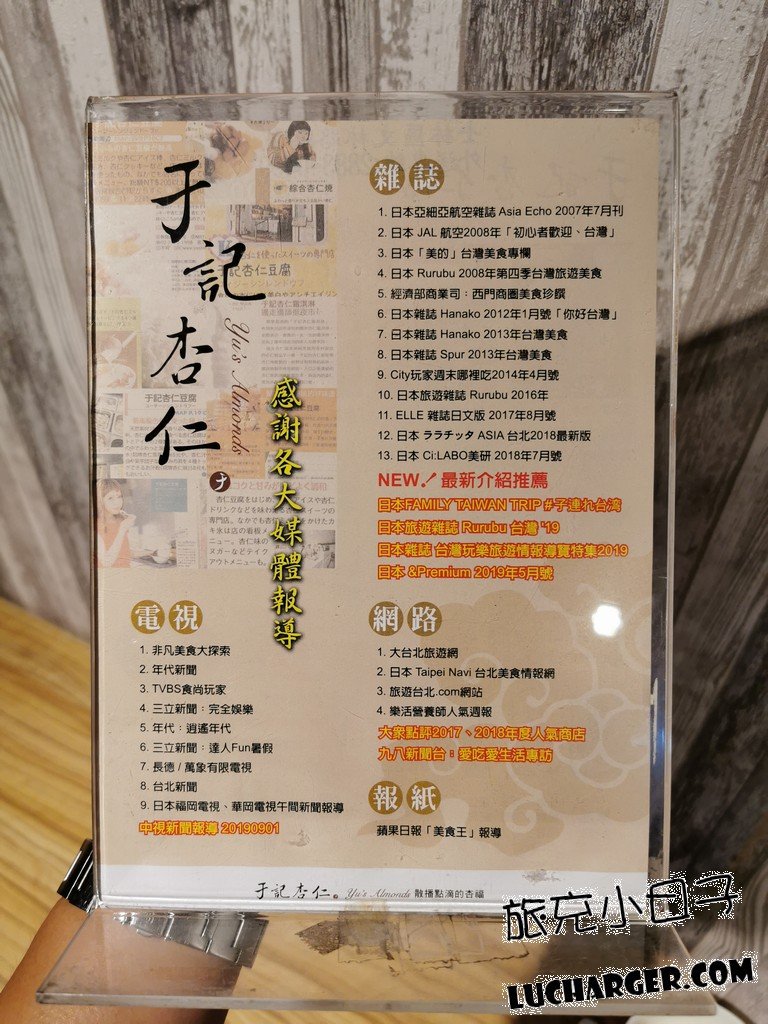 于記杏仁
Yu's Almonds
感謝各大媒體報導
綜合杏仁燒
于記杏仁豆腐
雜誌
1. 日本亞細亞航空雜誌 Asia Echo 2007年7月刊
2. 日本 JAL 航空2008年「初心者歡迎、台灣」
3. 日本「美的」台灣美食專欄
4. 日本 Rurubu 2008年第四季台灣旅遊美食
5. 經濟部商業司：西門商圈美食珍饌
6. 日本雜誌 Hanako 2012年1月號「你好台灣」
7. 日本雜誌 Hanako 2013年台灣美食
8. 日本雜誌 Spur 2013年台灣美食
9. City玩家週末哪裡吃2014年4月號
10. 日本旅遊雜誌 Rurubu 2016年
11. ELLE 雜誌日文版 2017年8月號
12. 日本 ララチッタ ASIA 台北2018最新版
13. 日本 Ci:LABO美研 2018年7月號
NEW! 最新介紹推薦
日本FAMILY TAIWAN TRIP #子連れ台湾
日本旅遊雜誌 Rurubu 台灣 '19
日本雜誌 台灣玩樂旅遊情報導覽特集2019
日本 &Premium 2019年5月號
電視
1. 非凡美食大探索
2. 年代新聞
3. TVBS食尚玩家
4. 三立新聞：完全娛樂
5. 年代：逍遙年代
6. 三立新聞：達人Fun暑假
7. 長德 / 萬象有限電視
8. 台北新聞
9. 日本福岡電視、華岡電視午間新聞報導
中視新聞報導 20190901
網路
1. 大台北旅遊網
2. 日本 Taipei Navi 台北美食情報網
3. 旅遊台北.com網站
4. 樂活營養師人氣週報
大眾點評2017、2018年度人氣商店
九八新聞台：愛吃愛生活專訪
報紙
蘋果日報「美食王」報導
于記杏仁。Yu's Almonds 散播點滴的杏福
旅充小日子
LUCHARGER.COM